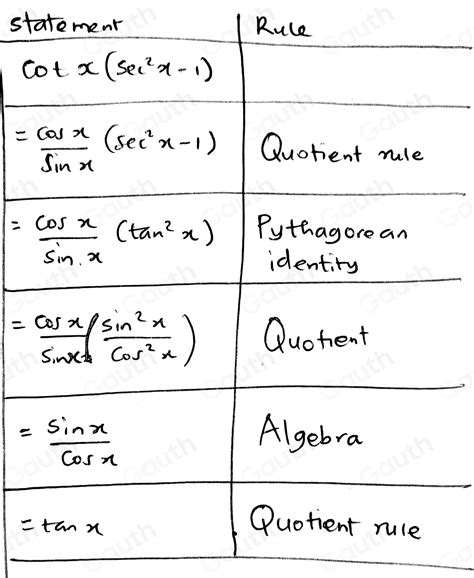 statement | Rule
cot x (sec²x-1)
= cos x / sin x (sec²x-1) | Quotient rule
= cos x / sin. x (tan² x) | Pythagorean identity
= cos x / sinx (sin² x / cos² x) | Quotient
= sin x / cos x | Algebra
= tan x | Quotient rule
Gauth